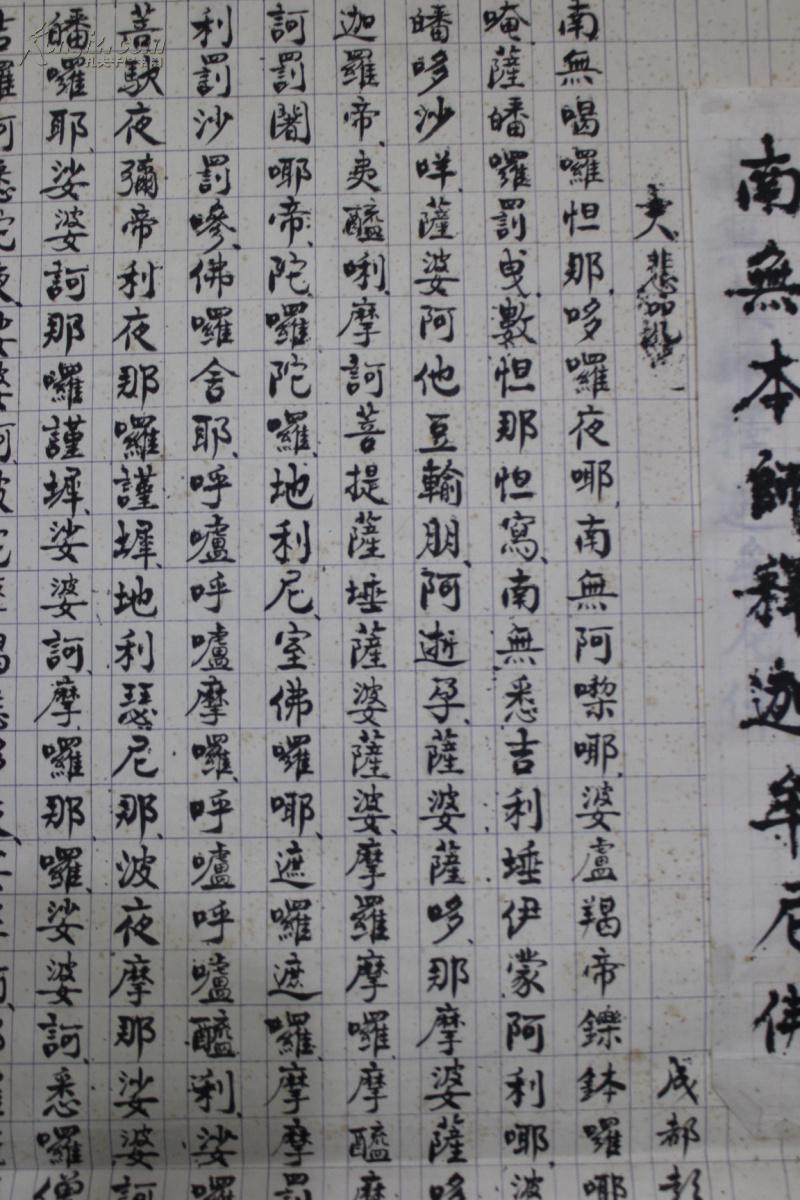 南無本師釋迦牟尼佛
成都彭
南無喝囉怛那、哆囉夜耶、南無阿喍耶、婆盧羯帝鑠鉢囉耶
唵、薩皤囉罰曳、數怛那怛寫、南無悉吉利埵伊蒙阿利耶、波
皤哆沙咩、薩婆阿他豆輸朋、阿逝孕、薩婆薩哆、那摩婆薩哆
迦羅帝、夷醯唎、摩訶菩提薩埵薩婆薩婆、摩羅摩囉、摩醯摩
訶罰闍耶帝、陀囉陀囉、地利尼、室佛囉耶、遮囉遮囉、摩摩罰
利罰沙罰嘇、佛囉舍耶、呼嚧呼嚧摩囉、呼嚧呼嚧醯利、娑囉
菩馱夜彌帝利夜那囉謹墀、地利瑟尼那、波夜摩那娑婆訶
皤囉耶、娑婆訶那囉謹墀、娑婆訶、摩囉那囉、娑婆訶、悉囉僧